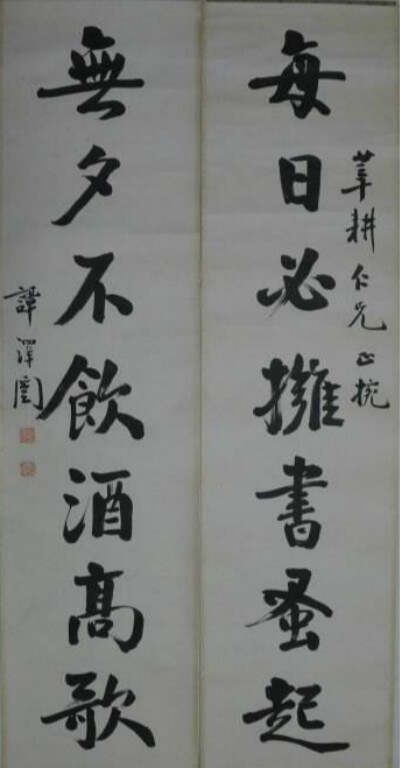 莘耕仁兄正捥
每日必擁書蚤起
無夕不飲酒高歌
譚澤闓